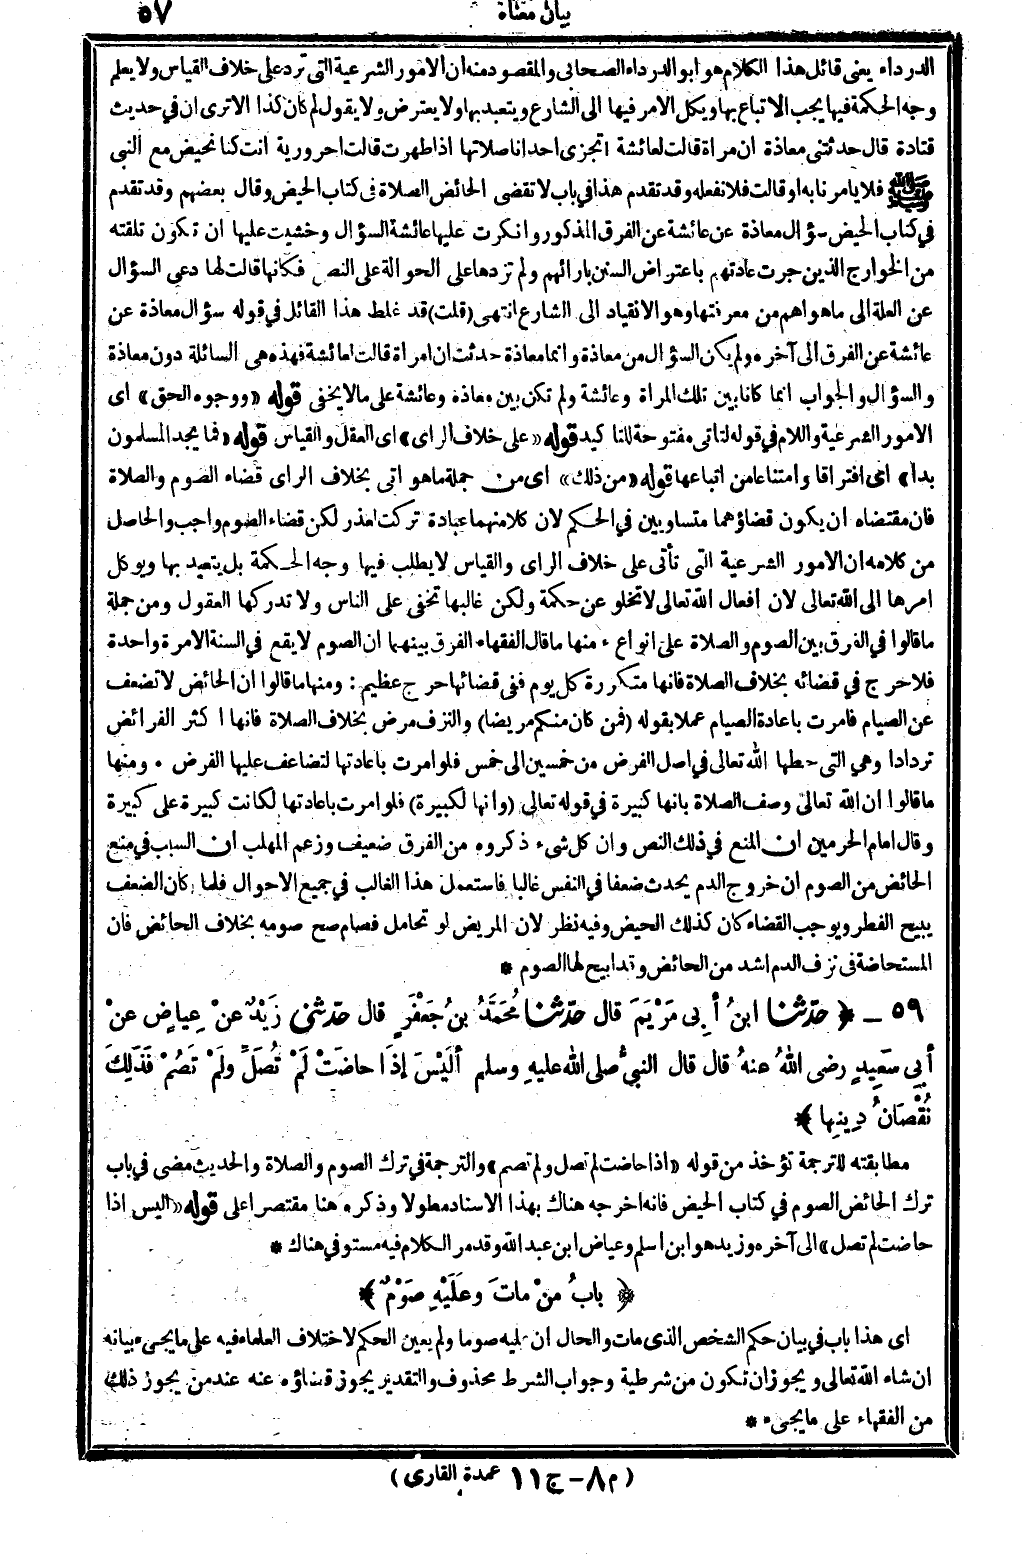 بيان معناه ٥٧
الدرداء يعنى قائل هذا الكلام هو ابو الدرداء الصحابى والمقصود منه ان الامور الشرعية التى ترد على خلاف القياس ولا يعلم
وجه الحكمة فيها يجب الاتباع بها ويكل الامر فيها الى الشارع ويتعبد بها ولا يعترض ولا يقول لم كان كذا الا ترى ان في حديث
قتادة قال حدثتنى معاذة ان مراة قالت لعائشة اتجزى احدانا صلاتها اذا طهرت قالت احرورية انت كنا نحيض مع النبى
ﷺ فلا يامرنا به او قالت فلا نفعله وقد تقدم هذا في باب لا تقضى الحائض الصلاة فى كتاب الحيض وقال بعضهم وقد تقدم
في كتاب الحيض سؤال معاذة عن عائشة عن الفرق المذكور وانكرت عليها عائشة السؤال وخشيت عليها ان تكون تلقته
من الخوارج الذين جرت عادتهم باعتراض السنن بارائهم ولم تزدها على الحوالة على النص فكانها قالت لها دعى السؤال
عن العلة الى ما هو اهم من معرفتها وهو الانقياد الى الشارع انتهى (قلت) قد غلط هذا القائل في قوله سؤال معاذة عن
عائشة عن الفرق الى آخره ولم يكن السؤال من معاذة وانما معاذة حدثت ان امراة قالت لعائشة فهذه هى السائلة دون معاذة
والسؤال والجواب انما كانا بين تلك المراة وعائشة ولم تكن بين معاذة وعائشة على ما لا يخفى قوله «ووجوه الحق» اى
الامور الشرعية واللام في قوله لتاتى مفتوحة للتاكيد قوله «على خلاف الراى» اى العقل والقياس قوله «فما يجد المسلمون
بدا» اى افتراقا وامتناعا من اتباعها قوله «من ذلك» اى من جملة ما هو اتى بخلاف الراى قضاء الصوم والصلاة
فان مقتضاه ان يكون قضاؤهما متساويين في الحكم لان كلا منهما عبادة تركت لعذر لكن قضاء الصوم واجب والحاصل
من كلامه ان الامور الشرعية التى تأتى على خلاف الراى والقياس لا يطلب فيها وجه الحكمة بل يتعبد بها ويوكل
امرها الى الله تعالى لان افعال الله تعالى لا تخلو عن حكمة ولكن غالبها تخفى على الناس ولا تدركها العقول ومن جملة
ما قالوا في الفرق بين الصوم والصلاة على انواع ، منها ما قال الفقهاء الفرق بينهما ان الصوم لا يقع في السنة الا مرة واحدة
فلا حرج في قضائه بخلاف الصلاة فانها متكررة كل يوم ففى قضائها حرج عظيم : ومنها ما قالوا ان الحائض لا تضعف
عن الصيام فامرت باعادة الصيام عملا بقوله (فمن كان منكم مريضا) والنزف مرض بخلاف الصلاة فانها اكثر الفرائض
تردادا وهي التى حطها الله تعالى في اصل الفرض من خمسين الى خمس فلو امرت باعادتها لتضاعف عليها الفرض . ومنها
ما قالوا ان الله تعالى وصف الصلاة بانها كبيرة في قوله تعالى (وانها لكبيرة) فلو امرت باعادتها لكانت كبيرة على كبيرة
وقال امام الحرمين ان المنع في ذلك النص وان كل شىء ذكروه من الفرق ضعيف وزعم المهلب ان السبب في منع
الحائض من الصوم ان خروج الدم يحدث ضعفا في النفس غالبا فاستعمل هذا الغالب في جميع الاحوال فلما كان الضعف
يبيح الفطر ويوجب القضاء كان كذلك الحيض وفيه نظر لان المريض لو تحامل فصام صح صومه بخلاف الحائض فان
المستحاضة فى نزف الدم اشد من الحائض وقد ابيح لها الصوم *
٥٩ ــ ﴿ حدّثنا ابنُ أبى مَرْيَمَ قال حدّثنا مُحَمَّدُ بنُ جَعْفَرٍ قال حدّثنى زَيْدٌ عنْ عِياضٍ عنْ
أبى سَعِيدٍ رضى اللهُ عنهُ قال قال النبىُّ صلى الله عليهِ وسلم ألَيْسَ إذَا حاضَتْ لَمْ تُصَلِّ ولَمْ تَصُمْ فَذَلِكَ
نُقْصَانُ دِينِها ﴾
مطابقته للترجمة تؤخذ من قوله «اذا حاضت لم تصل ولم تصم» والترجمة في ترك الصوم والصلاة والحديث مضى في باب
ترك الحائض الصوم في كتاب الحيض فانه اخرجه هناك بهذا الاسناد مطولا وذكره هنا مقتصرا على قوله «اليس اذا
حاضت لم تصل» الى آخره وزيد هو ابن اسلم وعياض ابن عبد الله وقد مر الكلام فيه مستوفي هناك *
﴿ بابُ منْ ماتَ وعَلَيْهِ صَوْمٌ ﴾
اى هذا باب في بيان حكم الشخص الذى مات والحال ان عليه صوما ولم يعين الحكم لاختلاف العلماء فيه على ما يجىء بيانه
ان شاء الله تعالى ويجوز ان تكون من شرطية وجواب الشرط محذوف والتقدير يجوز قضاؤه عنه عند من يجوز ذلك
من الفقهاء على ما يجىء *
(م ٨ - ج ١١ عمدة القارى)